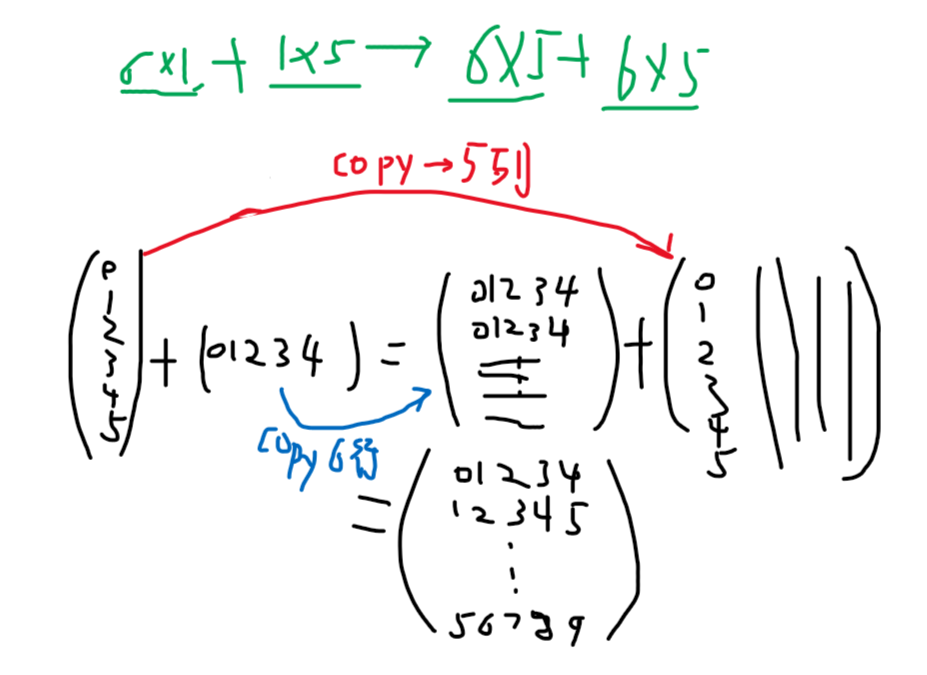 6×1 + 1×5 → 6×5 + 6×5
copy → 5列
0
1
2
3
4
5
+ (0 1 2 3 4) =
0 1 2 3 4
0 1 2 3 4
+
0
1
2
3
4
5
copy 6行
=
0 1 2 3 4
1 2 3 4 5
⋮
5 6 7 8 9